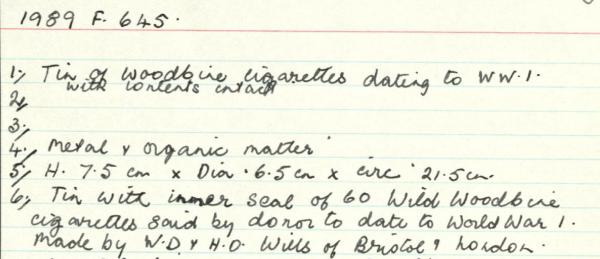 1989 F. 645.
1, Tin of Woodbine cigarettes dating to WW.1.
with contents intact
2,
3,
4, Metal & organic matter
5, H. 7.5 cm x Dia. 6.5 cm x circ 21.5 cm.
6, Tin with inner seal of 60 Wild Woodbine
cigarettes said by donor to date to World War 1.
Made by W.D & H.O. Wills of Bristol & London.